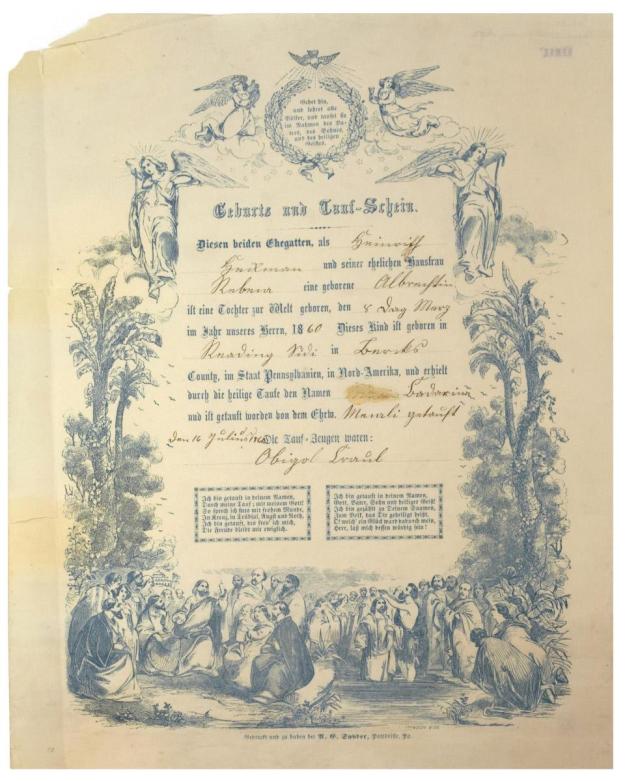 Gehet hin,
und lehret alle
Völker, und taufet sie
im Nahmen des Va-
ters, des Sohnes,
und des heiligen
Geistes.
Geburts und Tauf-Schein.
Diesen beiden Ehegatten, als Heinrich
Heckman und seiner ehelichen Hausfrau
Rebeca eine geborene Albrechtin
ist eine Tochter zur Welt geboren, den 8 Dag Merz
im Jahr unseres Herrn, 1860 Dieses Kind ist geboren in
Reading Sidi in Bercks
County, im Staat Pennsylvanien, in Nord-Amerika, und erhielt
durch die heilige Taufe den Namen Cadarina
und ist getauft worden von dem Ehrw. Menzli getauft
den 16 Julius Die Tauf-Zeugen waren:
Abigol Traul
Ich bin getauft in deinem Namen,
Durch meine Tauf; mit meinem Gott!
So sprech ich stets mit frohem Munde,
In Kreuz, in Trübsal, Angst und Noth,
Ich bin getauft, das freu' ich mich,
Die Freude bleibt mir ewiglich.
Ich bin getauft in deinem Namen,
Gott, Vater, Sohn und heiliger Geist!
Ich bin gezählt zu Deinem Saamen,
Zum Volk, das Dir geheiligt heißt,
O! welch' ein Glück ward dadurch mein,
Herr, laß mich dessen würdig sein!
Gedruckt und zu haben bei